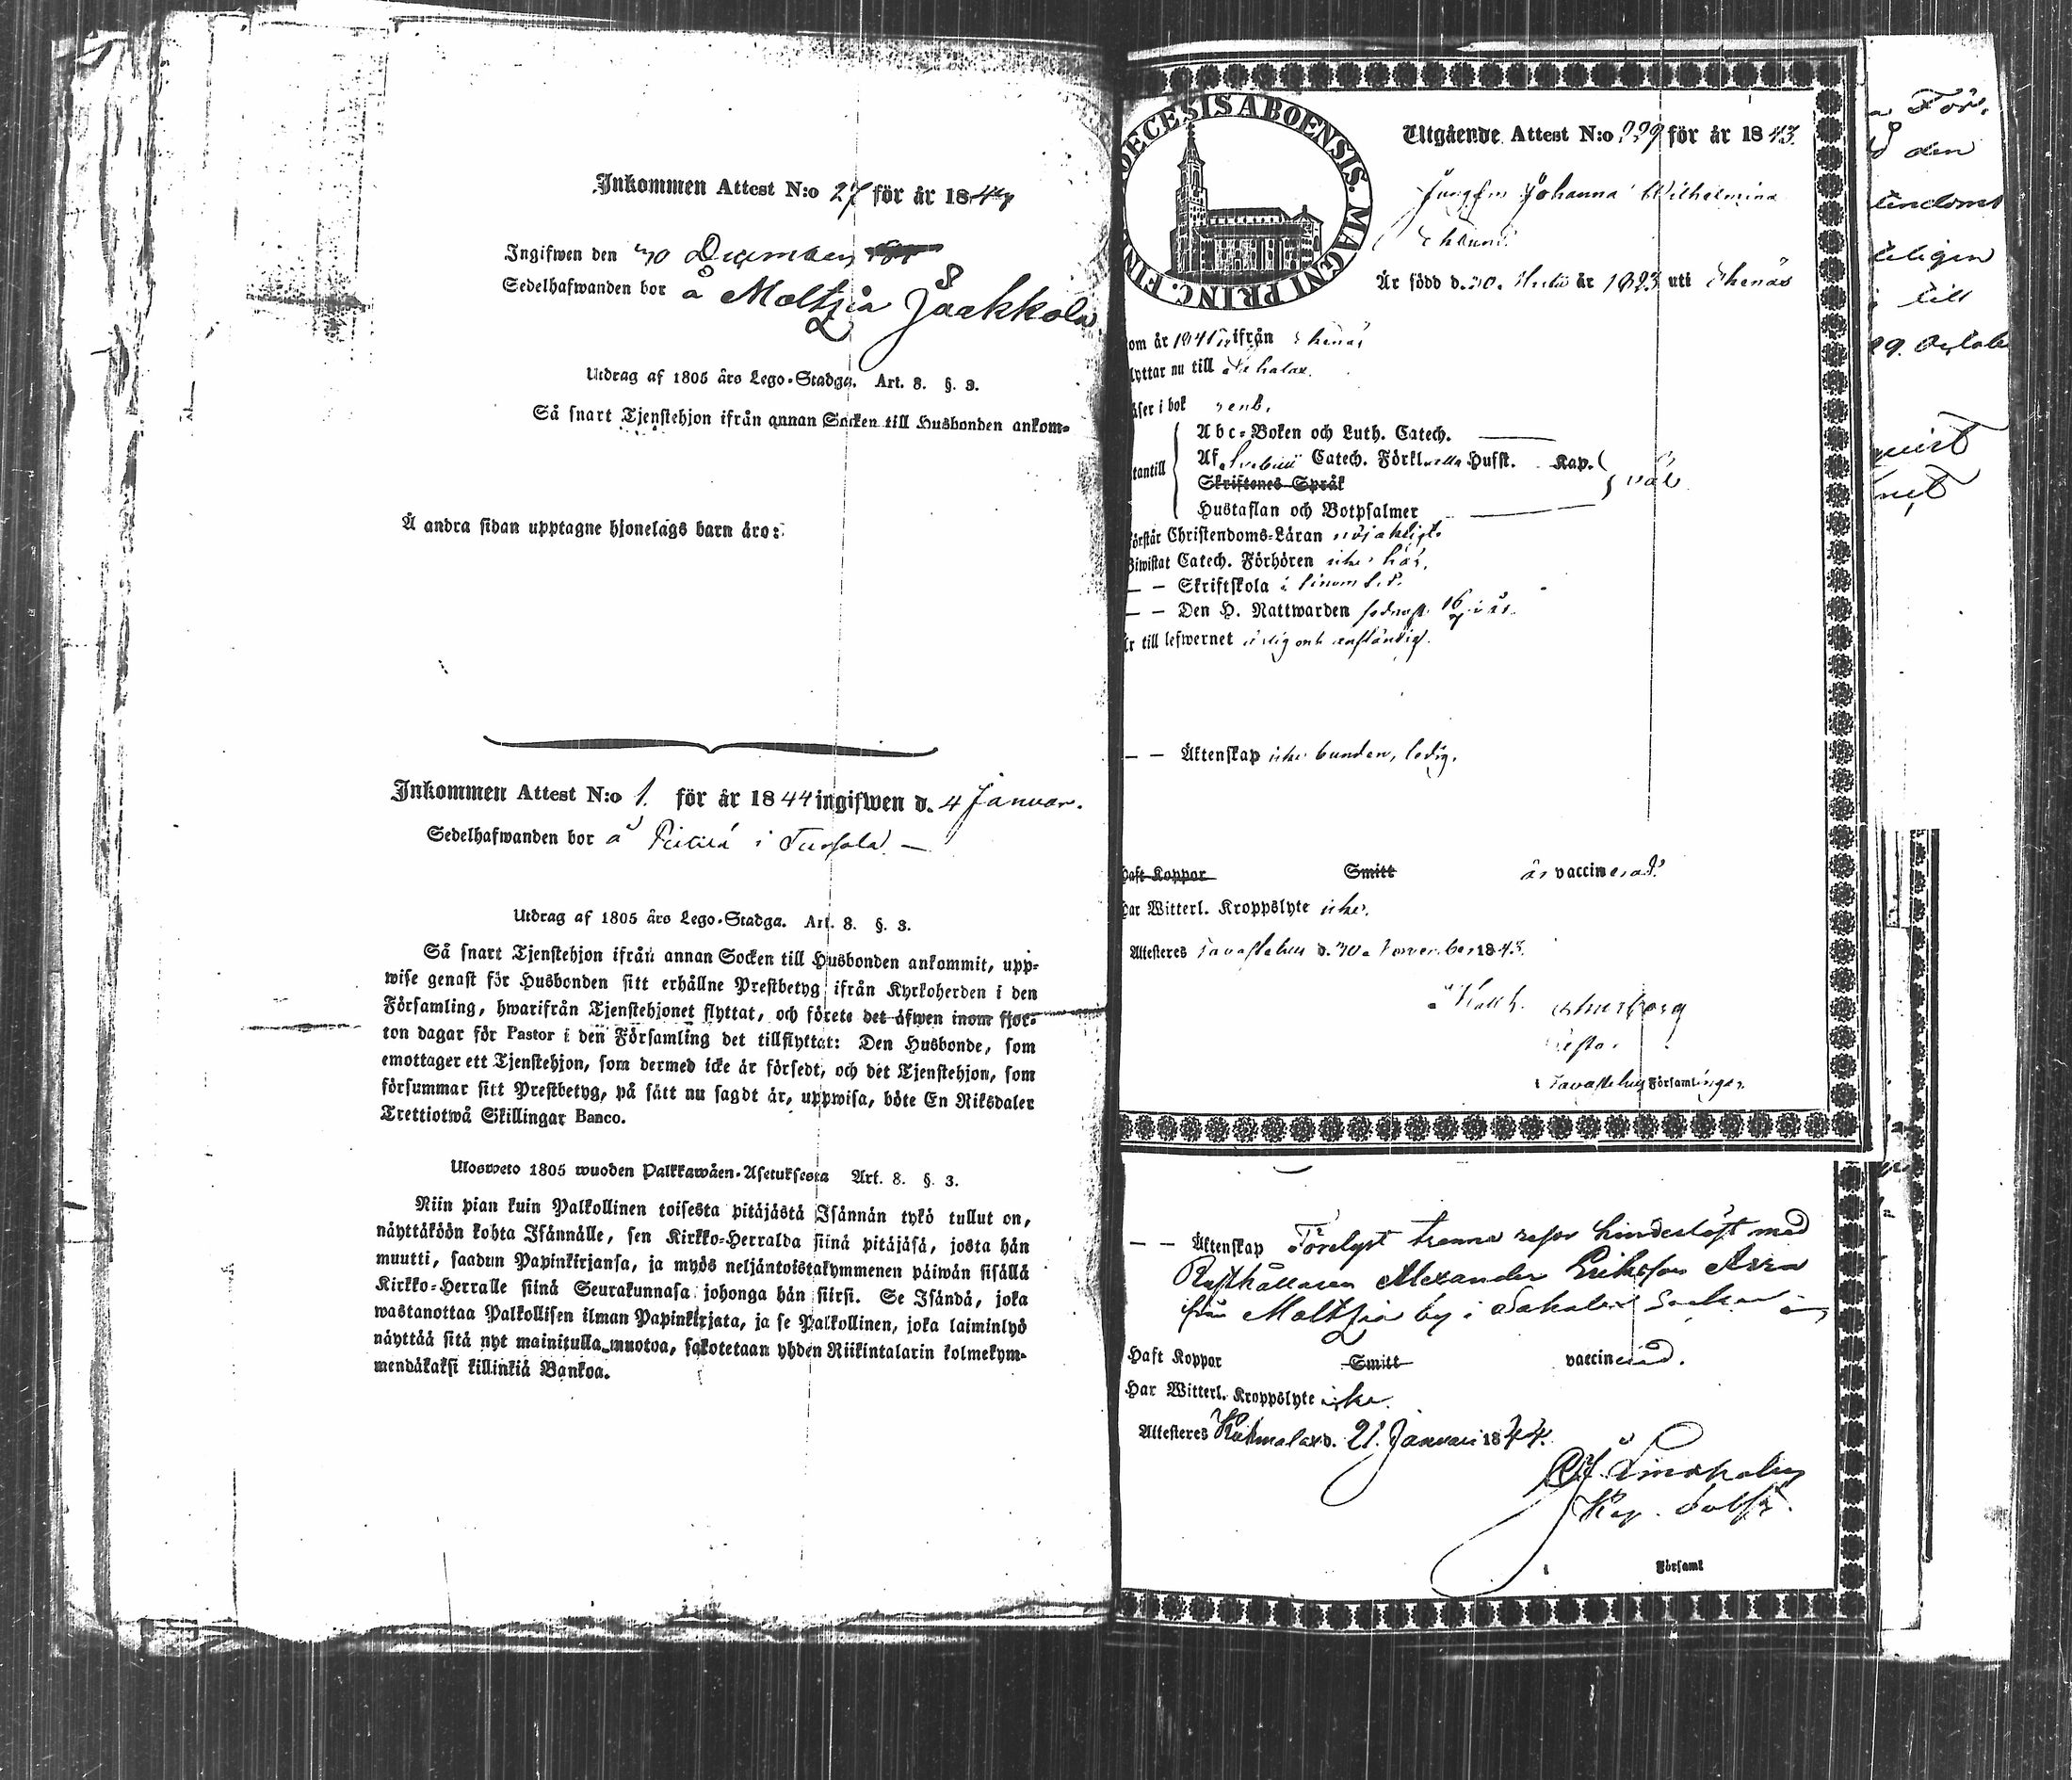 Inkommen Attest N:o 27 för år 1844
Ingifwen den 30 December
Sedelhafwanden bor å Maltzia Jaakkola
Utdrag af 1805 års Lego-Stadga. Art. 8. §. 3.
Så snart Tjenstehjon ifrån annan Socken till Husbonden ankom-
Å andra sidan upptagne hjonelags barn äro:
Inkommen Attest N:o 1. för år 1844 ingifwen d. 4 Januar.
Sedelhafwanden bor å i
Utdrag af 1805 års Lego-Stadga. Art. 8. §. 3.
Så snart Tjenstehjon ifrån annan Socken till Husbonden ankommit, upp-
wise genast för Husbonden sitt erhållne Prestbetyg ifrån Kyrkoherden i den
Församling, hwarifrån Tjenstehjonet flyttat, och förete det äfwen inom fjor-
ton dagar för Pastor i den Församling det tillflyttat: Den Husbonde, som
emottager ett Tjenstehjon, som dermed icke är försedt, och det Tjenstehjon, som
försummar sitt Prestbetyg, på sätt nu sagdt är, uppwisa, böte En Riksdaler
Trettiotwå Skillingar Banco.
Ulosweto 1805 wuoden Palkkawäen-Asetuksesta Art. 8. §. 3.
Niin pian kuin Palkollinen toisesta pitäjästä Isännän tykö tullut on,
näyttäköön kohta Isännälle, sen Kirkko-Herralda siinä pitäjäsä, josta hän
muutti, saadun Papinkirjansa, ja myös neljäntoistakymmenen päiwän sisällä
Kirkko-Herralle siinä Seurakunnasa johonga hän siirsi. Se Isändä, joka
wastanottaa Palkollisen ilman Papinkirjata, ja se Palkollinen, joka laiminlyö
näyttää sitä nyt mainitulla muotoa, sakotetaan yhden Riikintalarin kolmekym-
mendäkaksi killinkiä Bankoa.
DECESIS ABOENSIS. MAGNI PRINC. FIN
Utgående Attest N:o 229 för år 1843.
Jungfru Johanna Wilhelmina
Är född d. 20. år 1823 uti Ekenäs
om år 1841 ifrån Ekenäs
lyttar nu till Sahalax.
äser i bok
Abc-Boken och Luth. Catech.
tantill Af Svebilii Catech. Förkl. Husst. Kap. väl
Skriftenes Språk
Hustaflan och Botpsalmer
örstår Christendoms-Läran nöjaktigt.
Biwistat Catech. Förhören icke här.
— — Skriftskola
— — Den H. Nattwarden sednast 16/7 i år.
är till lefwernet ärlig och anständig.
— — Äktenskap icke bunden, ledig.
haft Koppor Smitt är vaccinerad.
har Witterl. Kroppslyte icke.
Attesteres Tavastehus d. 30 November 1843.
Pastor
i Tavastehus Församlingar.
— — Äktenskap Förelyst trenne resor hinderlöst med
Rusthållaren Alexander Eriksson
från Maltzia by i Sahalax Socken
Haft Koppor Smitt vaccinerad.
Har Witterl. Kroppslyte icke.
Attesteres Kuhmalax d. 21. Januari 1844.
Lindholm
Kap.
Församl
För.
den
till
29. October